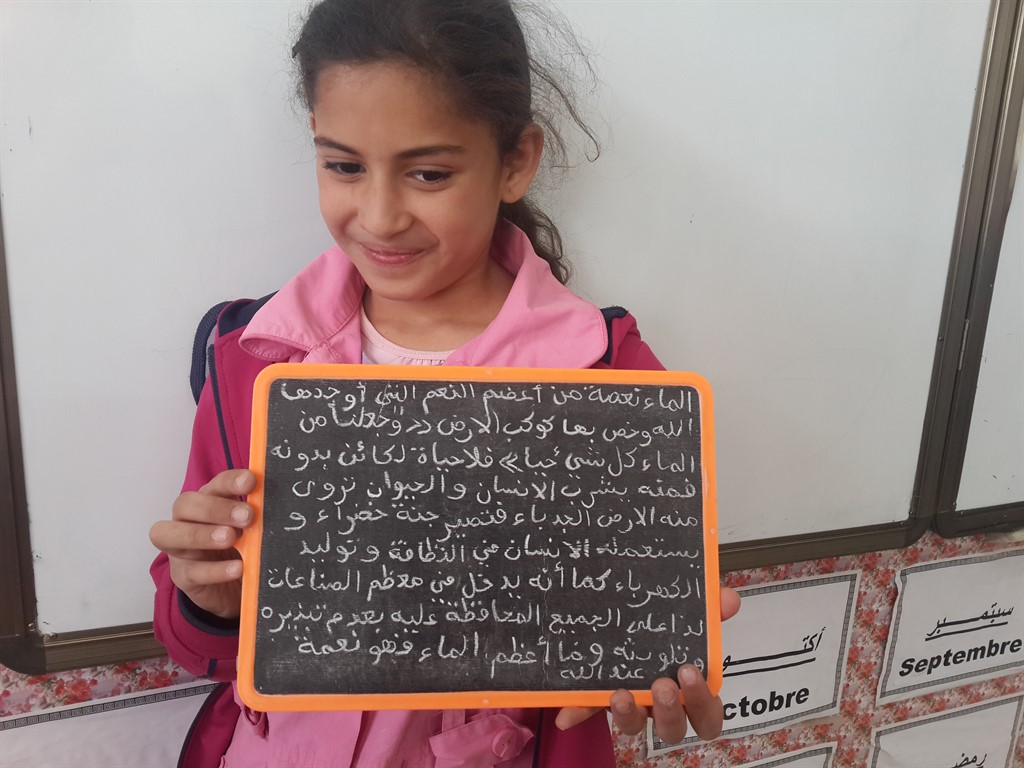 الماء نعمة من أعضم النعم التي أوجدها
الله وخص بها كوكب الارض << وجعلنا من
الماء كل شيء حيا >> فلا حياة لكائن بدونه
فمنه يشرب الانسان والحيوان تروى
منه الارض الجدباء فتصير جنة خضراء و
يستعمله الانسان في النظافة و توليد
الكهرباء كما أنه يدخل في معظم الصناعات
لذا على الجميع المحافظة عليه بعدم تبذيره
و تلويثه و ما أعظم الماء فهو نعمة
عند الله
أكتوبر
octobre
سبتمبر
Septembre